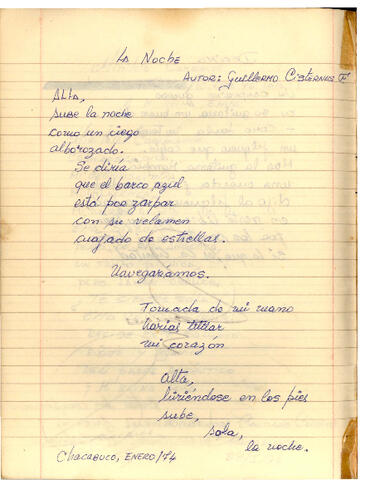 La Noche
Autor: Guillermo Cisternas F.
Alta,
sube la noche
como un ciego
alborozado.
Se diría
que el barco azul
está por zarpar
con su velamen
cuajado de estrellas.
Navegaríamos.
Tomada de mi mano
harías titilar
mi corazón
Alta,
hiriéndose en los pies
sube,
sola,
la noche.
Chacabuco, Enero/74